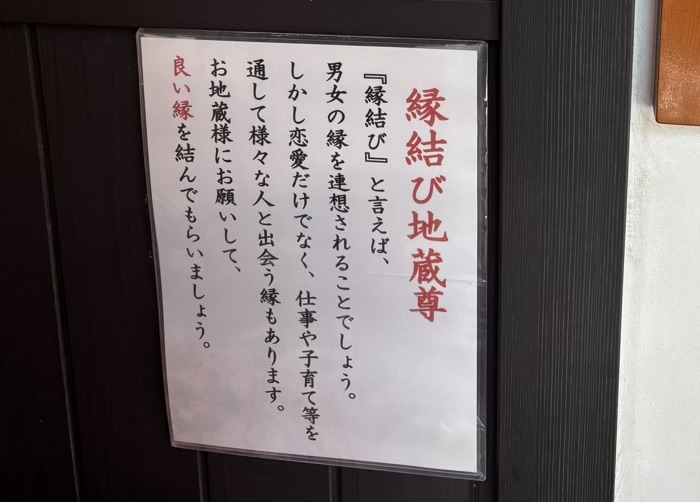 縁結び地蔵尊
『縁結び』と言えば、
男女の縁を連想されることでしょう。
しかし恋愛だけでなく、仕事や子育て等を
通して様々な人と出会う縁もあります。
お地蔵様にお願いして、
良い縁を結んでもらいましょう。